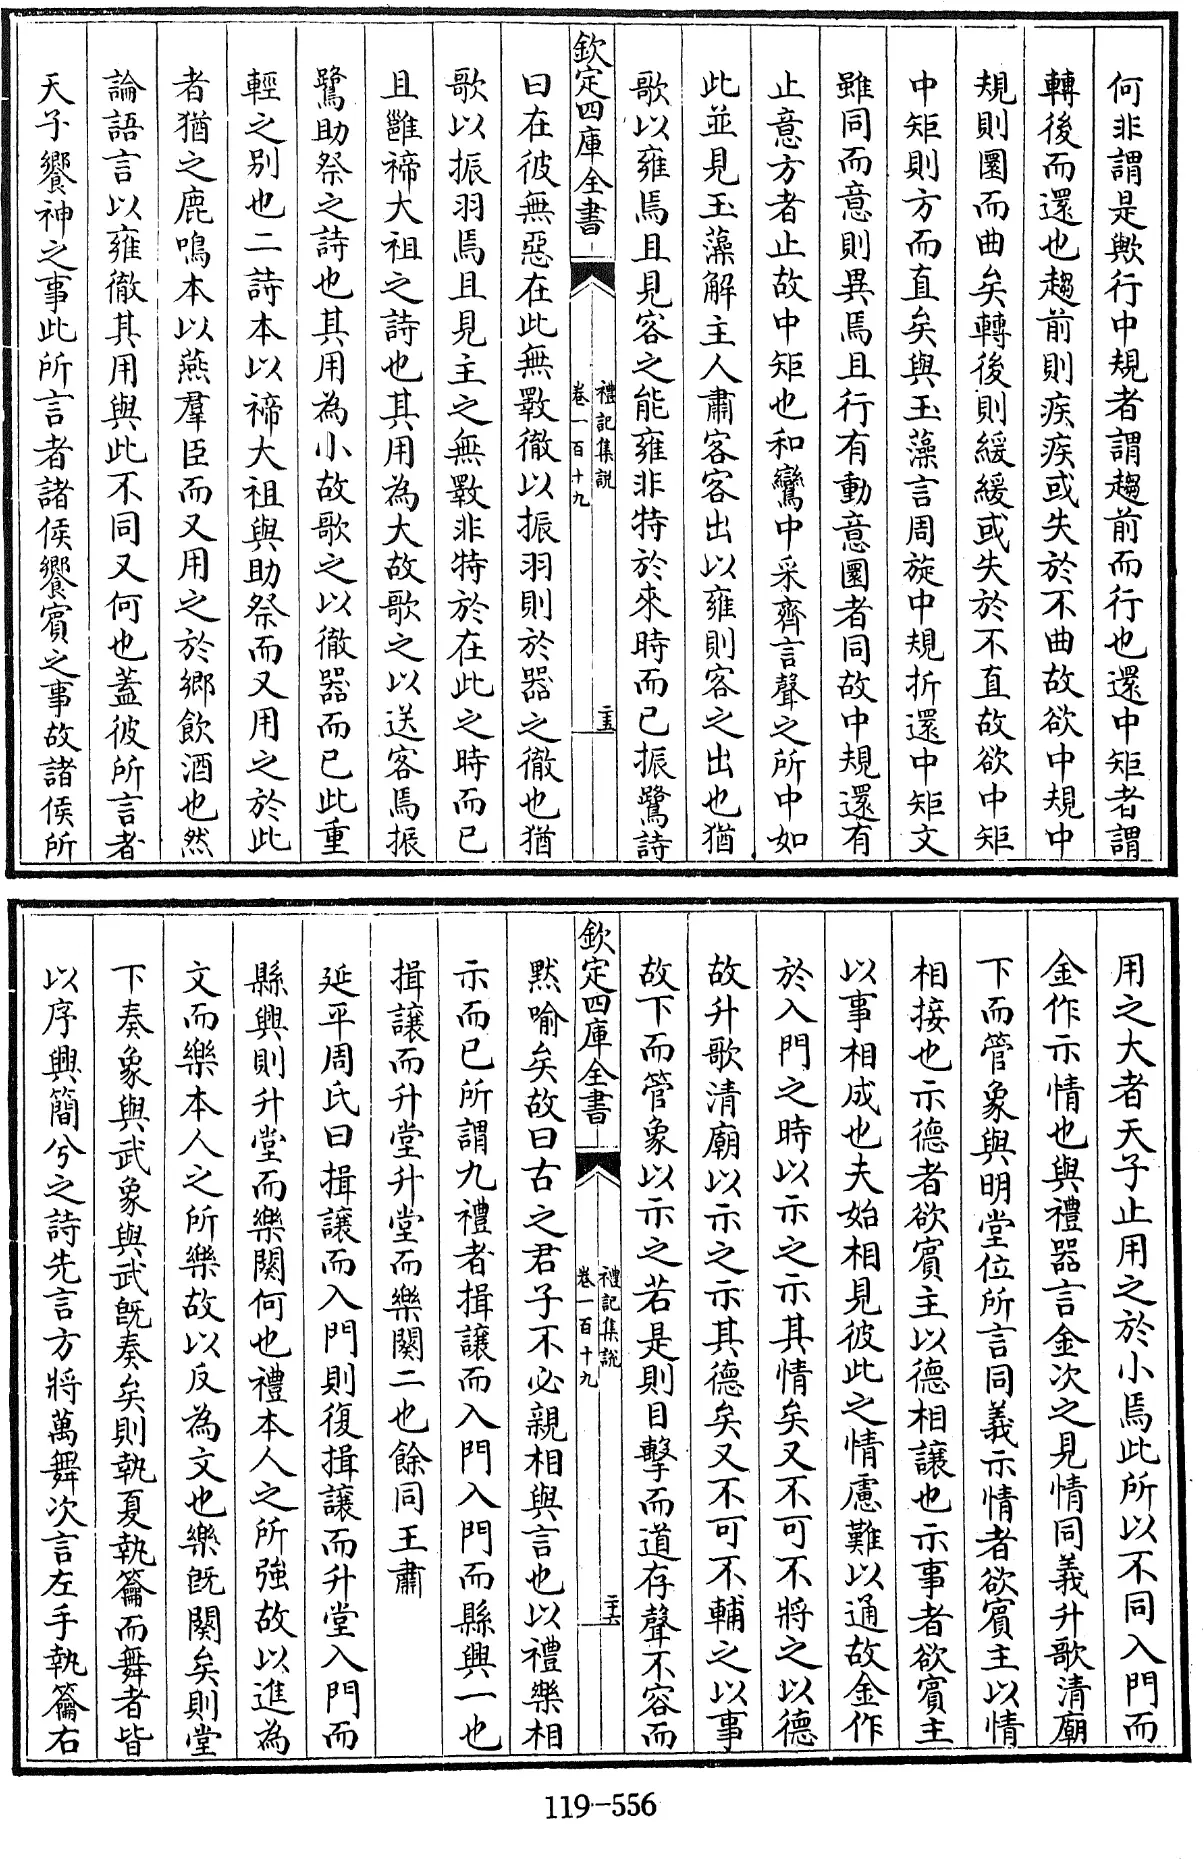 何非謂是歟行中規者謂趨前而行也還中矩者謂
轉後而還也趨前則疾疾或失於不曲故欲中規中
規則圜而曲矣轉後則緩緩或失於不直故欲中矩
中矩則方而直矣與玉藻言周旋中規折還中矩文
雖同而意則異焉且行有動意圜者同故中規還有
止意方者止故中矩也和鸞中采齊言聲之所中如
此並見玉藻解主人肅客客出以雍則客之出也猶
歌以雍焉且見客之能雍非特於來時而已振鷺詩
欽定四庫全書
禮記集說
卷一百十九
二十五
曰在彼無惡在此無斁徹以振羽則於器之徹也猶
歌以振羽焉且見主之無斁非特於在此之時而已
且雝禘大祖之詩也其用為大故歌之以送客焉振
鷺助祭之詩也其用為小故歌之以徹器而已此重
輕之別也二詩本以禘大祖與助祭而又用之於此
者猶之鹿鳴本以燕羣臣而又用之於鄉飲酒也然
論語言以雍徹其用與此不同又何也蓋彼所言者
天子饗神之事此所言者諸侯饗賓之事故諸侯所
用之大者天子止用之於小焉此所以不同入門而
金作示情也與禮器言金次之見情同義升歌清廟
下而管象與明堂位所言同義示情者欲賓主以情
相接也示德者欲賓主以德相讓也示事者欲賓主
以事相成也夫始相見彼此之情慮難以通故金作
於入門之時以示之示其情矣又不可不將之以德
故升歌清廟以示之示其德矣又不可不輔之以事
故下而管象以示之若是則目擊而道存聲不容而
欽定四庫全書
禮記集說
卷一百十九
二十六
默喻矣故曰古之君子不必親相與言也以禮樂相
示而已所謂九禮者揖讓而入門入門而縣興一也
揖讓而升堂升堂而樂闋二也餘同王肅
延平周氏曰揖讓而入門則復揖讓而升堂入門而
縣興則升堂而樂闋何也禮本人之所強故以進為
文而樂本人之所樂故以反為文也樂旣闋矣則堂
下奏象與武象與武旣奏矣則執夏執籥而舞者皆
以序興簡兮之詩先言方將萬舞次言左手執籥右
119-556